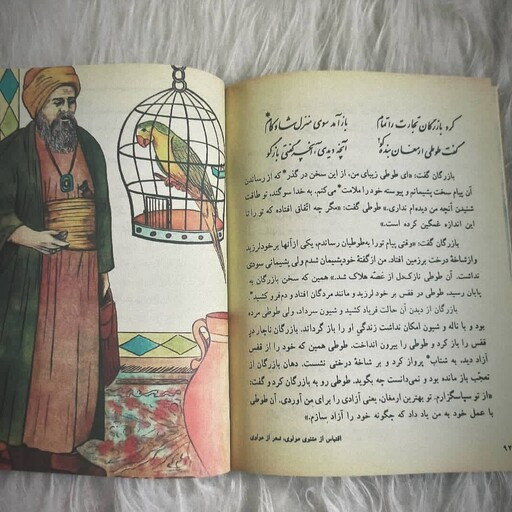 کرد بازرگان تجارت را تمام    باز آمد سوی منزل شادکام*
گفت طوطی ارمغان بنده کو؟    آنچه دیدی، آنچه گفتی بازگو
بازرگان گفت: «ای طوطی زیبای من، از این سخن در گذر* که از رساندن
آن پیام سخت پشیمانم و پیوسته خود را ملامت* می‌کنم. به خدا سوگند، تو طاقت
شنیدن آنچه من دیده‌ام نداری.» طوطی گفت: «مگر چه اتّفاق افتاده که تو را تا
این اندازه غمگین کرده است.»
بازرگان گفت: «وقتی پیام تو را به طوطیان رساندم، یکی از آنها بر خود لرزید
و از شاخهٔ درخت بر زمین افتاد. من از گفتهٔ خود پشیمان شدم ولی پشیمانی سودی
نداشت. آن طوطی نازک‌دل از غصّه هلاک شد.» همین که سخن بازرگان به
پایان رسید، طوطی در قفس بر خود لرزید و مانند مردگان افتاد و دم فرو کشید*.
بازرگان از دیدن آن حالت فریاد کشید و شیون سرداد، ولی طوطی مرده
بود و با ناله و شیون امکان نداشت زندگی او را باز گرداند. بازرگان ناچار در
قفس را باز کرد و طوطی را بیرون انداخت. طوطی همین که خود را از قفس
آزاد دید، به شتاب* پرواز کرد و بر شاخهٔ درختی نشست. دهان بازرگان از
تعجّب باز مانده بود و نمی‌دانست چه بگوید. طوطی رو به بازرگان کرد و گفت:
«از تو سپاسگزارم. تو بهترین ارمغان، یعنی آزادی را برای من آوردی. آن طوطی
با عمل خود به من یاد داد که چگونه خود را آزاد سازم.»
اقتباس از مثنوی مولوی، شعر از مولوی